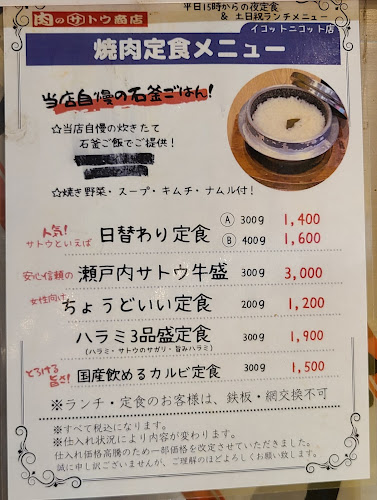 肉のサトウ商店
平日15時からの夜定食
& 土日祝ランチメニュー
イコットニコット店
焼肉定食メニュー
当店自慢の石釜ごはん!
☆当店自慢の炊きたて
石釜ご飯でご提供!
☆焼き野菜・スープ・キムチ・ナムル付!
人気!
サトウといえば
日替わり定食 Ⓐ 300g 1,400
Ⓑ 400g 1,600
安心信頼の 瀬戸内サトウ牛盛 300g 3,000
女性向け ちょうどいい定食 200g 1,200
ハラミ3品盛定食 300g 1,900
(ハラミ・サトウのサガリ・旨みハラミ)
とろける
旨さ! 国産飲めるカルビ定食 300g 1,500
※ランチ・定食のお客様は、鉄板・網交換不可
※すべて税込になります。
※仕入れ状況により内容が変わります。
仕入れ価格高騰のため一部価格を改定させていただきました。
誠に申し訳ございませんが、ご理解のほどよろしくお願い致します。